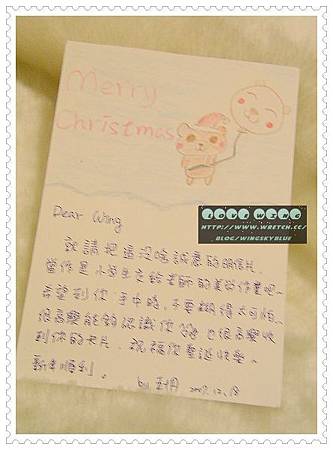 Merry
Christmas
HTTP://WWW.WRETCH.CC/
BLOG/WINGSKYBLUE
Dear Wing
就請把這沒啥誠意的明信片,
當作是小學生交給老師的美術作業吧~
希望到你手中時,不要糊得太可怕~
很高興能夠認識你 也很高興收
到你的卡片. 祝福你聖誕快樂~
新年順利.
by 2007.12.18